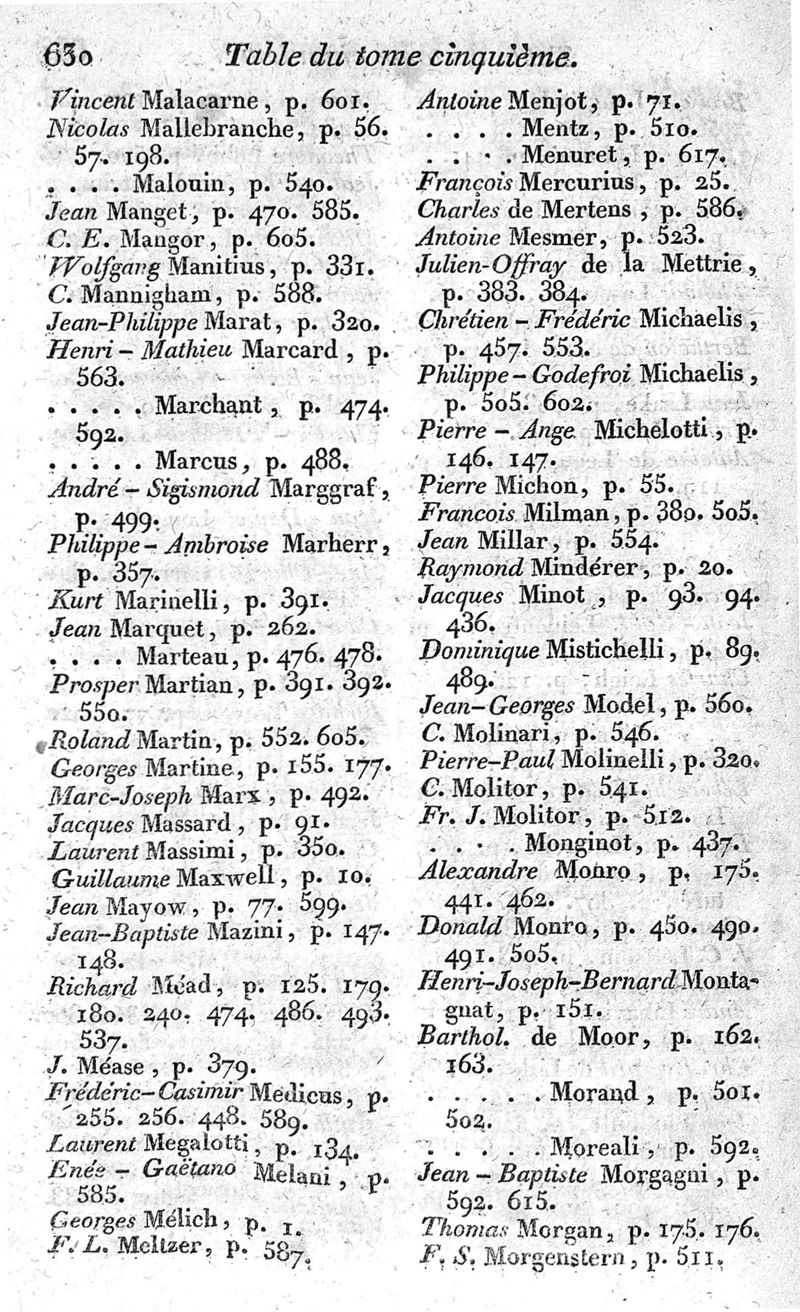 630 Table du tome cinquième.
Vincent Malacarne, p. 601.
Nicolas Mallebranche, p. 56.
57. 198.
. . . . Malouin, p. 540.
Jean Manget, p. 470. 585.
C. E. Mangor, p. 605.
Wolfgang Manitius, p. 331.
C. Mannigham, p. 588.
Jean-Philippe Marat, p. 320.
Henri – Mathieu Marcard , p.
563.
. . . . . Marchant , p. 474.
592.
. . . . . Marcus, p. 488.
André – Sigismond Marggraf ,
p. 499.
Philippe – Ambroise Marherr ,
p. 357.
Kurt Marinelli, p. 391.
Jean Marquet, p. 262.
. . . . Marteau, p. 476. 478.
Prosper Martian, p. 391. 392.
550.
Roland Martin, p. 552. 605.
Georges Martine, p. 155. 177.
Marc-Joseph Marx , p. 492.
Jacques Massard , p. 91.
Laurent Massimi, p. 350.
Guillaume Maxwell, p. 10.
Jean Mayow, p. 77. 599.
Jean-Baptiste Mazini, p. 147.
148.
Richard Méad, p. 125. 179.
180. 240. 474. 486. 493.
537.
J. Méase , p. 379.
Frédéric – Casimir Medicus, p.
255. 256. 448. 589.
Laurent Megalotti, p. 134.
Enée – Gaëtano Melani , p.
585.
Georges Mélich, p. 1.
F. L. Meltzer, p. 587.
Antoine Menjot, p. 71.
. . . . Mentz, p. 510.
. . . . Menuret, p. 617.
François Mercurius, p. 25.
Charles de Mertens , p. 586.
Antoine Mesmer, p. 523.
Julien-Offray de la Mettrie ,
p. 383. 384.
Chrétien – Frédéric Michaelis ,
p. 457. 553.
Philippe – Godefroi Michaelis ,
p. 505. 602.
Pierre – Ange Michelotti , p.
146. 147.
Pierre Michon, p. 55.
Francois Milman, p. 380. 505.
Jean Millar, p. 554.
Raymond Mindérer, p. 20.
Jacques Minot , p. 93. 94.
436.
Dominique Mistichelli , p. 89.
489.
Jean – Georges Model, p. 560.
C. Molinari, p. 546.
Pierre-Paul Molinelli, p. 320.
C. Molitor, p. 541.
Fr. J. Molitor, p. 512.
. . . . Monginot, p. 437.
Alexandre Monro , p. 175.
441. 462.
Donald Monro, p. 450. 490.
491. 505.
Henri-Joseph-Bernard Monta-
gnat, p. 151.
Barthol. de Moor, p. 162.
163.
. . . . . Morand , p. 501.
502.
. . . . . Moreali , p. 592.
Jean – Baptiste Morgagni , p.
592. 615.
Thomas Morgan, p. 175. 176.
F. S. Morgenstern, p. 511.